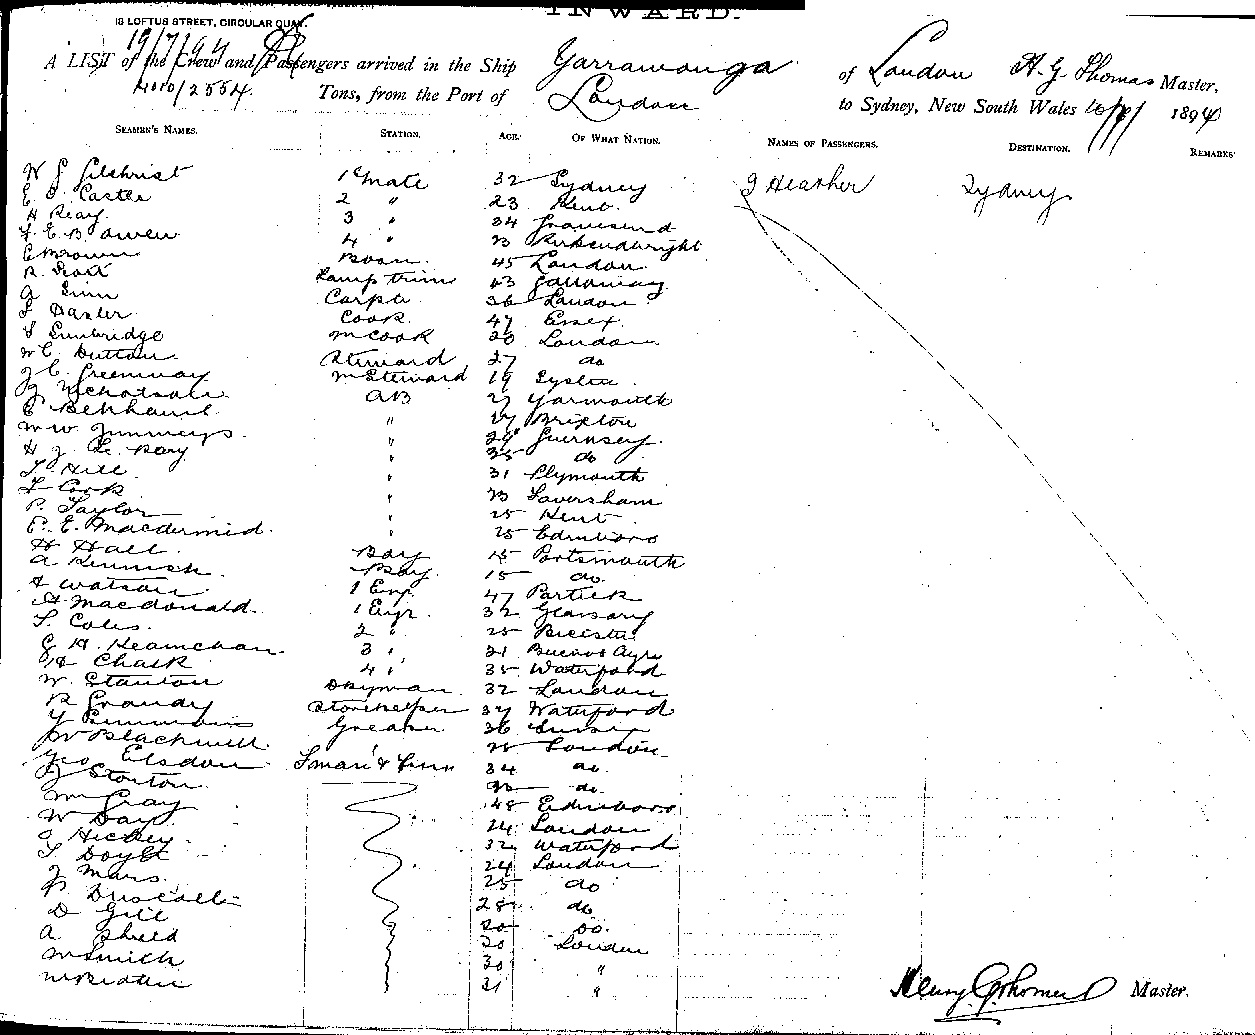 INWARD.
18 LOFTUS STREET, CIRCULAR QUAY.
19/7/94
A LIST of the Crew and Passengers arrived in the Ship Yarrawonga of London H. G Thomas Master,
4010/2554. Tons, from the Port of London to Sydney, New South Wales 1894
SEAMEN'S NAMES. STATION. AGE. OF WHAT NATION. NAMES OF PASSENGERS. DESTINATION. REMARKS
W G Gilchrist 1 Mate 32 Sydney J Heather Sydney
E J Carter 2 " 23 Kent
H Reay. 3 " 34 Gravesend
F. E. B. Owen 4 " 23 Kirkcudwright
C Brown Bosn. 45 London
R. Scott Lamp trim 43 Galloway
A Linn Carptr 36 London
F Daxter Cook 47 Essex.
S Gumbridge M Cook 20 London
W C. Dutton Steward 27 do
J C. Greenway M Steward 19
J Nicholson AB 27 Yarmouth
E Benhami " 27 Brixton
M W. Jimmeys " 29 Guernsey.
H J. Le Bary " 35 do
T. Hill " 31 Plymouth
F Cook " 23 Faversham
P. Taylor " 25 Kent
P. E. Macdermid. " 25 Edinboro
H Hall. Boy 15 Portsmouth
A Kinnish Boy. 15 do.
A Watson 1 Eng. 47 Partick
A. Macdonald. 1 Engr. 32 Glasgow
T. Coles. 2 " 25 Bicester
G H. Kearnehan 3 " 21 Buenos Ayre
H Chalk 4 " 35 Waterford
W. Stanton Dkyman 32 London
R Grandy Storekeeper 37 Waterford
Y Greaser 36
W Blackwell. London
Geo Elsdon Sman & Firn 34 do.
J Stonton do.
Wm Gray 48 Edinboro
W Day 24 London
J Hickey 32 Waterford
T Doyle 24 London
J Mars. 25 do
P. Driscoll 28 do
D Gill 20 do.
A Shield 20 London
W Smith 30 "
W Beattie 31 "
Henry G Thomas Master.